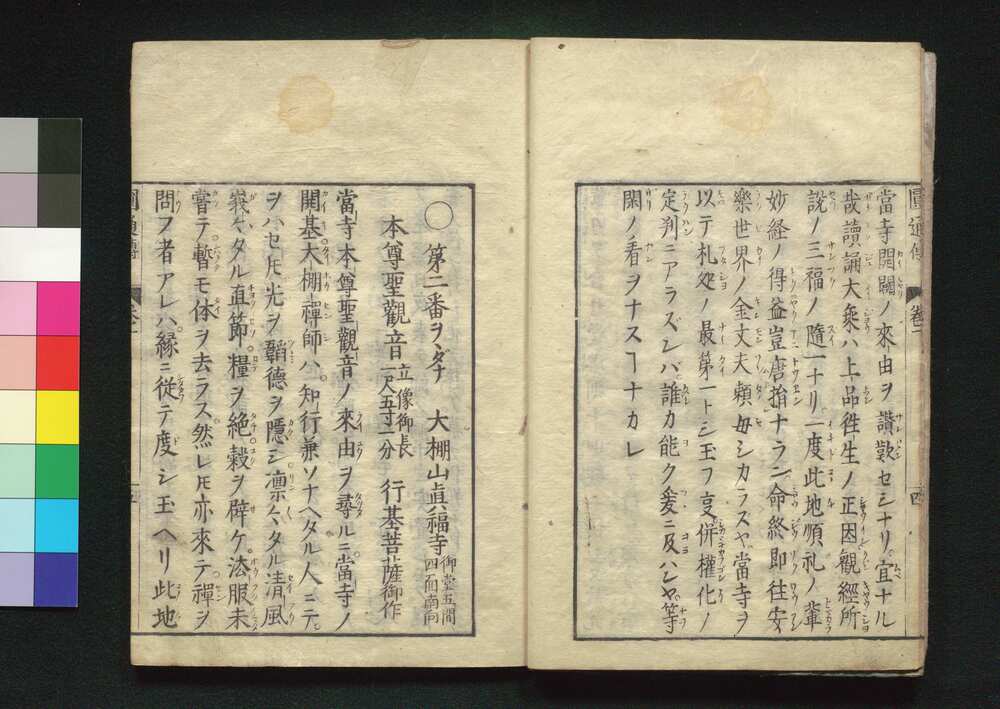 當寺開闢ノ來由ヲ讃歎セシナリ宜ナル
哉讀誦大乘ハ上品徃生ノ正因觀經所
說ノ三福ノ隨一ナリ一度此地順礼ノ輩
妙経ノ得益豈唐捐ナラン命終即往安
樂世界ノ金文夫頼母シカラスヤ當寺ヲ
以テ札処ノ最第一トシ玉フ叓併權化ノ
定判ニアラズンバ誰カ能ク爰ニ及ハンヤ等
閑ノ看ヲナスヿナカレ
圓通傳 卷一 四
○第二番ヲヽダナ 大棚山眞福寺 御堂五間四面南向
本尊聖觀音 立像御長一尺五寸二分 行基菩薩御作
當寺本尊聖觀音ノ來由ヲ尋ルニ當寺ノ
開基大棚禪師ハ知行兼ソナヘタル人ニテ
ヲハセ𪜈光ヲ韜德ヲ隱シ凛々タル清風
峩々タル直節糧ヲ絶穀ヲ辟ケ法服未
嘗テ暫モ体ヲ去ラス然レ𪜈亦來テ禪ヲ
問フ者アレハ緣ニ從テ度シ玉ヘリ此地